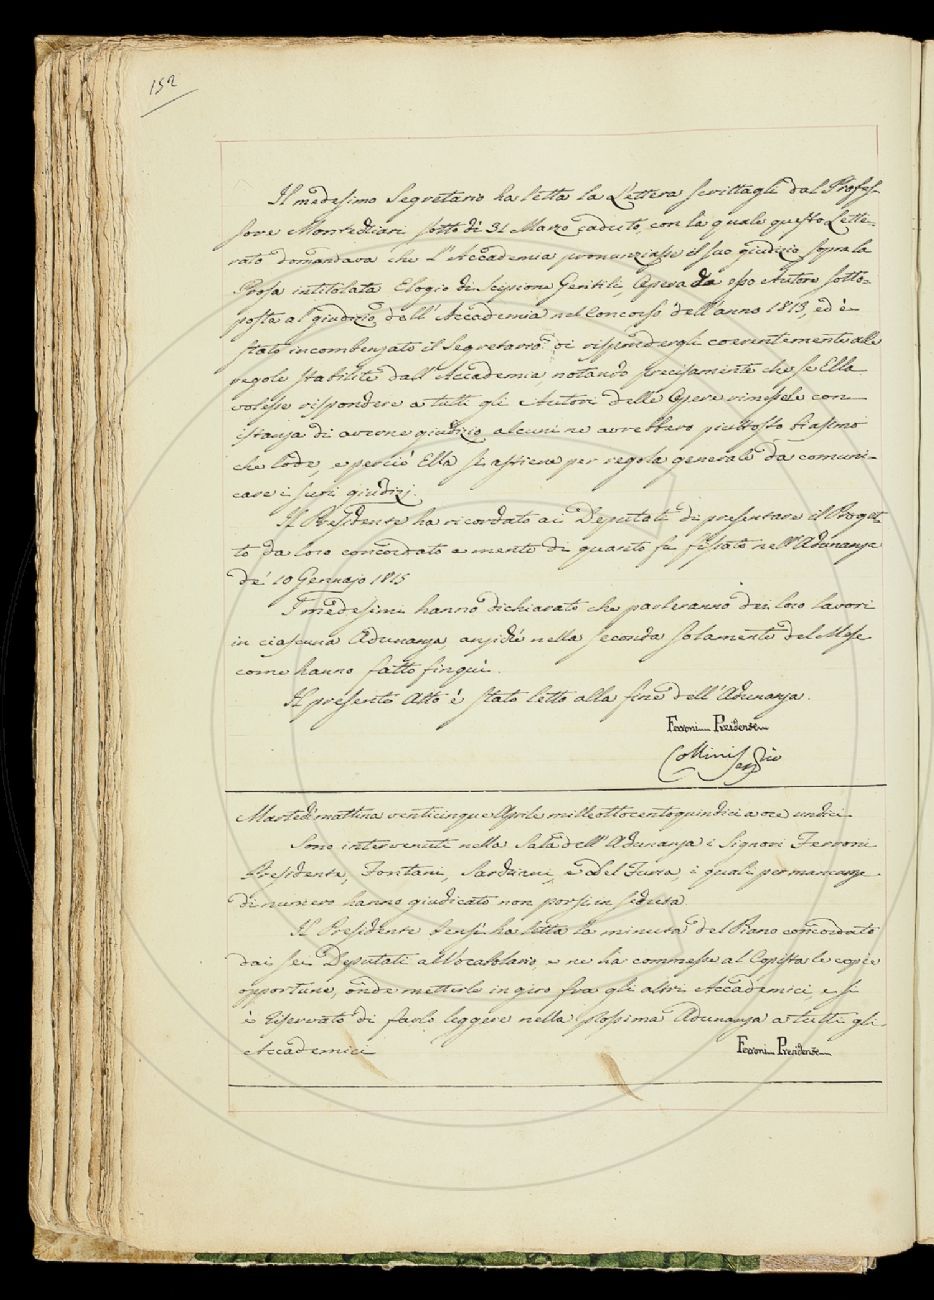 152
Il medesimo Segretario ha letta la Lettera scrittagli dal Profes-
sore Montechiari sotto dì 31 Marzo caduto, con la quale questo Lette-
rato domandava che l'Accademia pronunziasse il suo giudizio sopra la
Prosa intitolata Elogio di Scipione Gentili, Opera da esso Autore sotto-
posta al giudizio dell'Accademia nel Concorso dell'anno 1813, ed è
stato incombenzato il Segretario di rispondergli coerentemente alle
regole stabilite dall'Accademia, notando precisamente che se Ella
volesse rispondere a tutti gli Autori delle Opere rimessele con
istanza di averne giudizio alcuni ne avrebbero piuttosto biasimo
che lode, e perciò Ella si astiene per regola generale da comuni-
care i suoi giudizi.
Il Presidente ha ricordato ai Deputati di presentare il Proget-
to da loro concordato a mente di quanto fu fissato nell'Adunanza
de' 10 Gennajo 1815
I medesimi hanno dichiarato che parleranno dei loro lavori
in ciascuna Adunanza, anzichè nella seconda solamente del Mese
come hanno fatto finquì.
Il presente Atto è stato letto alla fine dell'Adunanza.
Ferroni Presidente
Collini Seg.rio
Martedì mattina venticinque Aprile milleottocentoquindici a ore undici
Sono intervenuti nella Sala dell'Adunanza i Signori Ferroni
Presidente, Fontani, Sarchiani, e Del Furia, i quali per mancanza
di numero hanno giudicato non porsi in seduta
Il Presidente ha letta la minuta del Piano concordato
dai sei Deputati al Vocabolario, e ne ha commesse al Copista le copie
opportune, onde metterle in giro fra gli altri Accademici, e si
è riservato di farlo leggere nella prossima Adunanza a tutti gli
Accademici
Ferroni Presidente